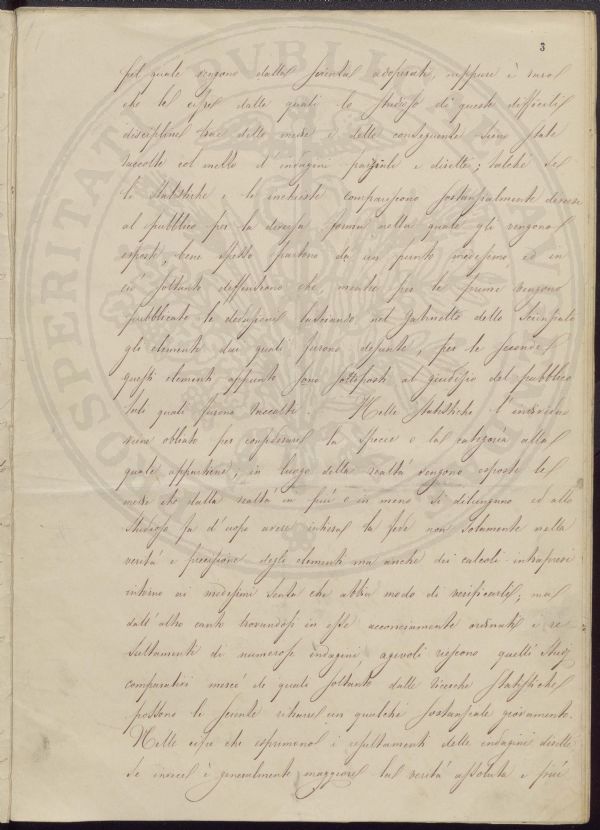 3
pel quale vengono dalla scienza adoperati, neppure è raro
che le cifre dalle quali lo studioso di queste difficili
discipline trae delle medie e delle conseguenze sieno state
raccolte col mezzo d'indagini parziali e dirette; talché se
le statistiche e le inchieste compariscono sostanzialmente diverse
al pubblico per la diversa forma nella quale gli vengono
esposte, bene spesso partono da un punto medesimo ed in
ciò soltanto differiscono che, mentre per le prime vengono
pubblicate le deduzioni lasciando nel gabinetto dello scienziato
gli elementi dai quali furono desunte, per le seconde
questi elementi appunto sono sottoposti al giudizio del pubblico
tali quali furono raccolti. Nelle statistiche l'individuo
viene obliato per considerare la specie o la categoria alla
quale appartiene, in luogo della realtà vengono esposte le
medie che dalla realtà in più o in meno si dilungano ed allo
studioso fa d'uopo avere intiera la fede non solamente nella
verità e precisione degli elementi ma anche dei calcoli intrapresi
intorno ai medesimi senza che abbia modo di verificarli; ma
dall'altro canto trovandosi in esse acconciamente ordinati i re
sultamenti di numerose indagini, agevoli riescono quelli studj
comparativi mercé de' quali soltanto dalle ricerche statistiche
possono le scienze ritrarre un qualche sostanziale giovamento.
Nelle cifre che esprimono i resultamenti delle indagini dirette
se invece è generalmente maggiore la verità assoluta e più